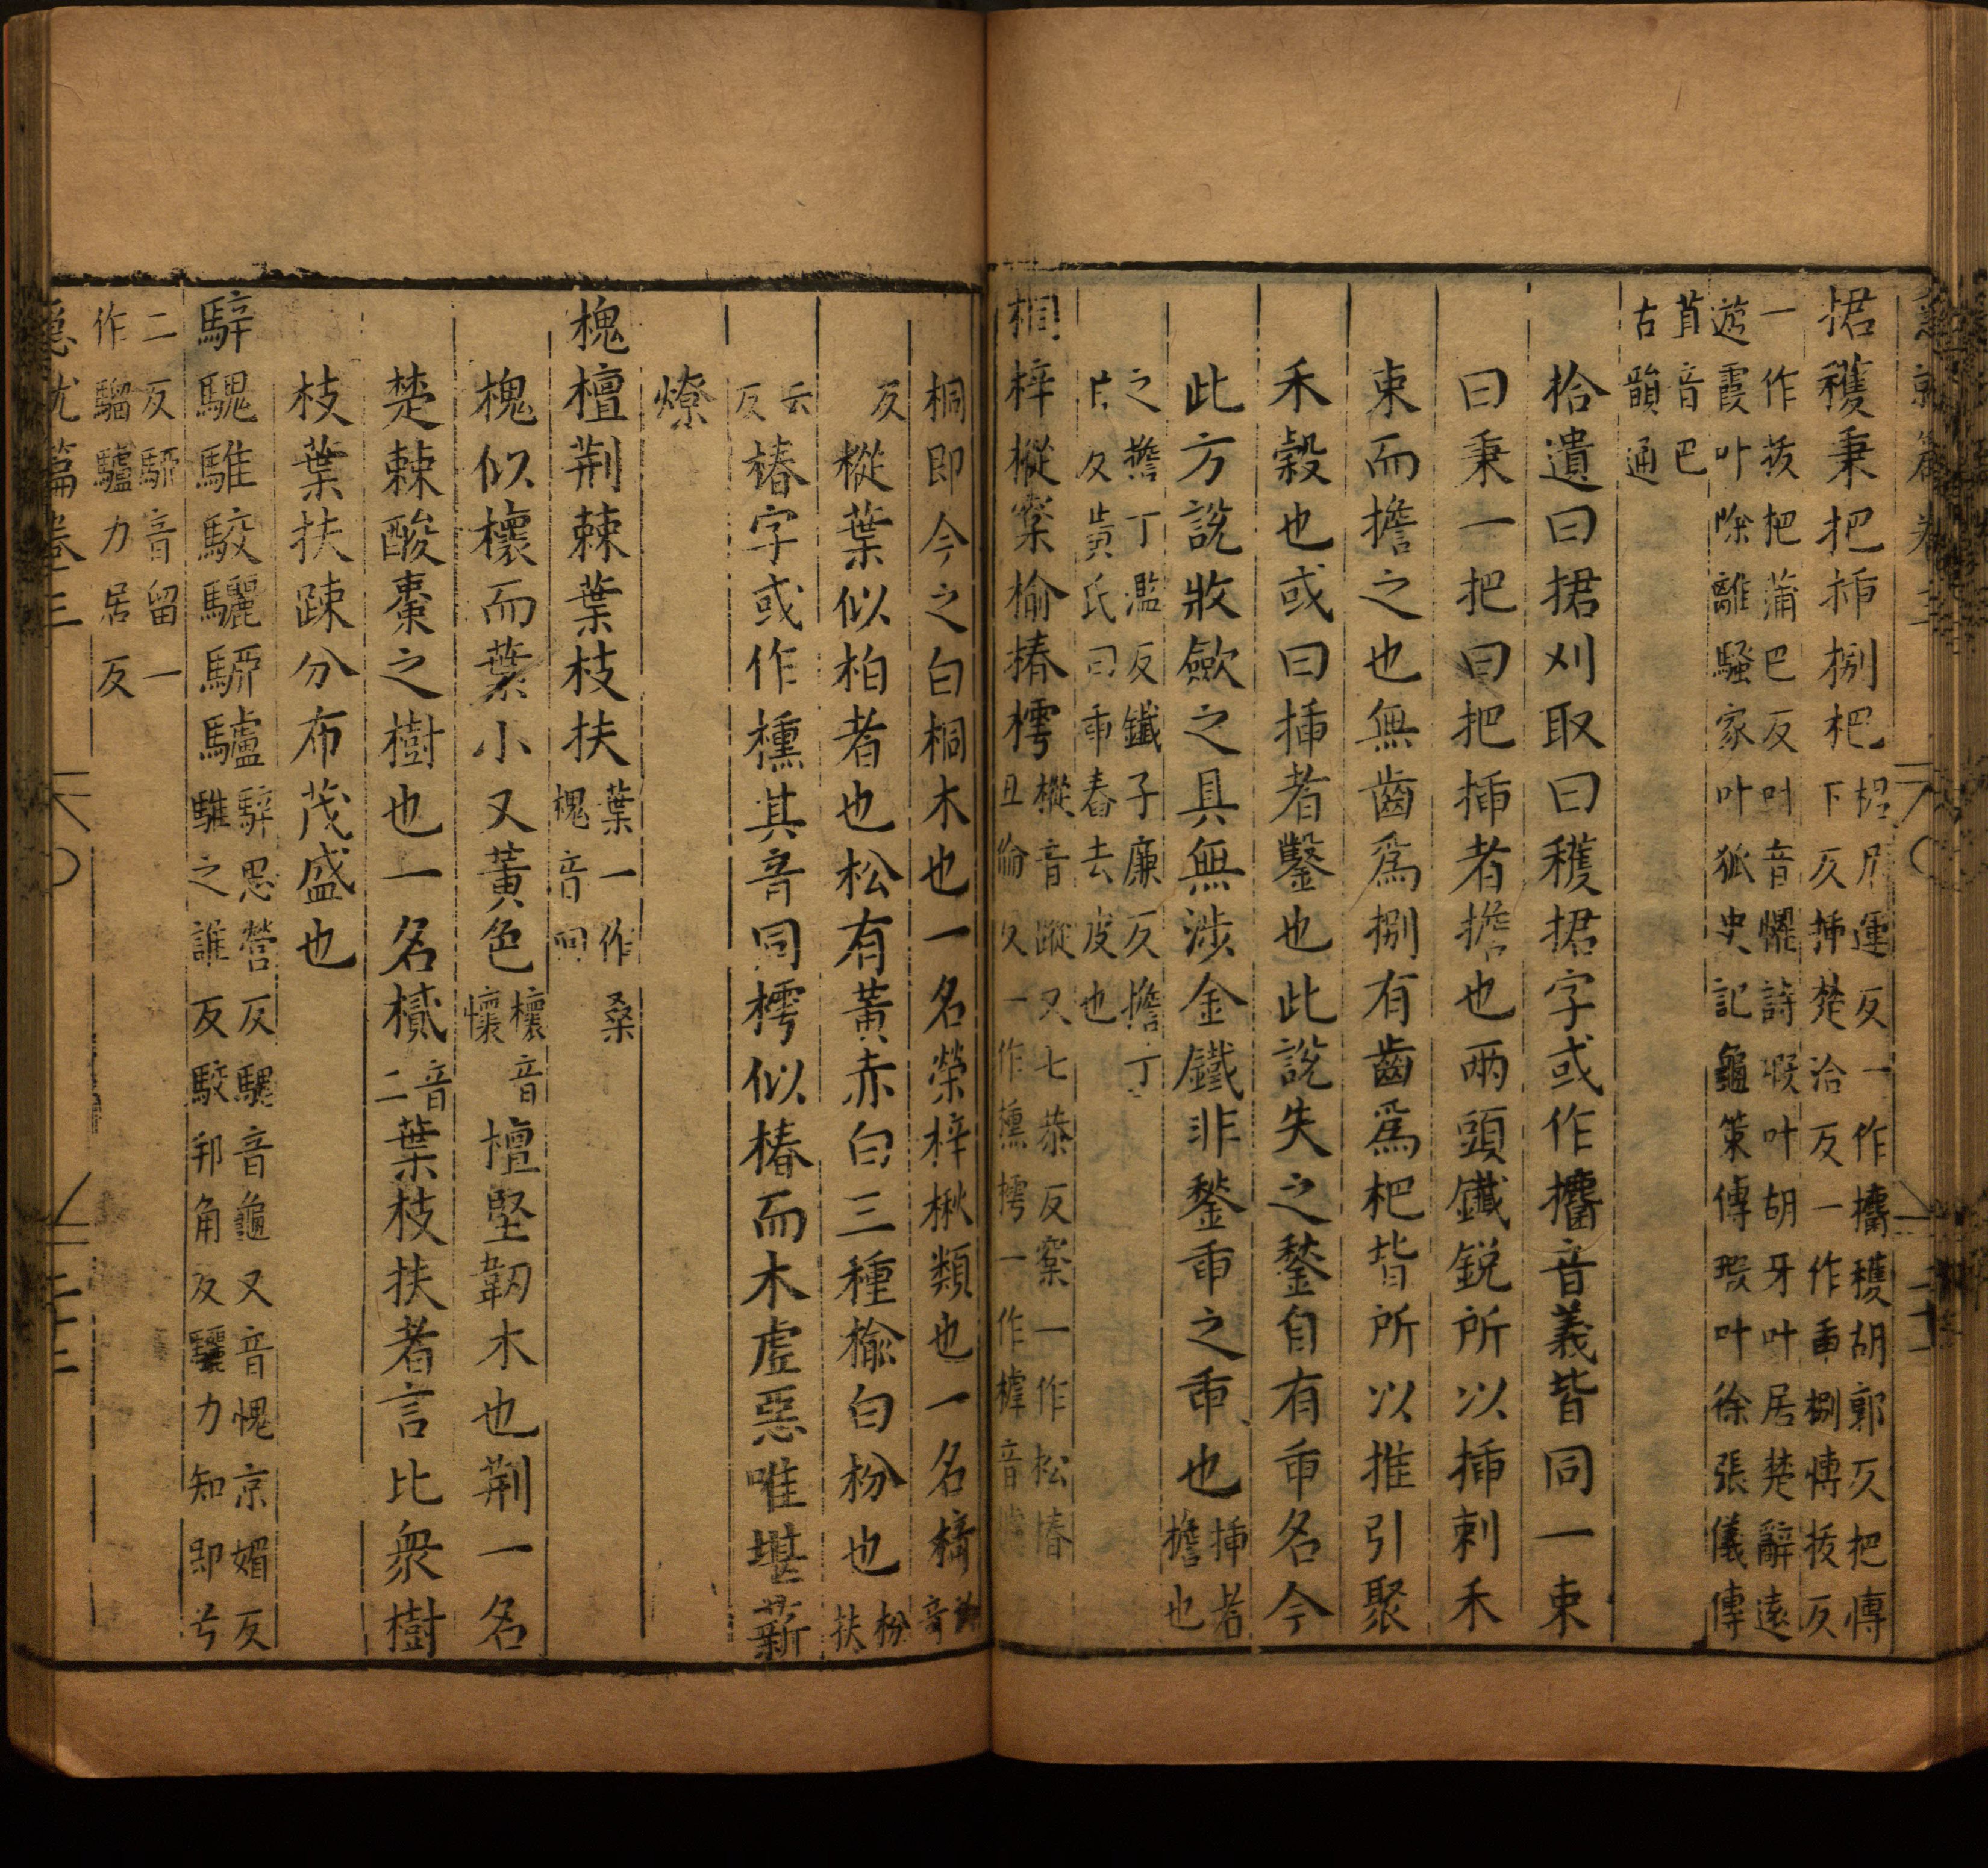 捃穫秉把揷捌杷
捃居運反一作攟穫胡郭反把愽
下反揷楚洽反一作臿捌愽拔反
一作菝把蒲巴反叶音懼詩嘏叶胡牙叶居楚辭遠
遊霞叶除離騷家叶狐史記龜策傳瑕叶徐張儀傳
苴音巴
古韻通
拾遺曰捃刈取曰穫捃字或作攟音義皆同一束
曰秉一把曰把揷者擔也兩頭鑯銳所以揷刺禾
束而擔之也無齒爲捌有齒爲杷皆所以推引聚
禾穀也或曰揷者鑿也此説失之鍫自有臿名今
此方説收斂之具無涉金鐵非鍫臿之臿也
揷者
擔也
之擔丁濫反鑯子廉反擔丁
甘反黃氏曰臿舂去皮也
桐梓樅榆椿樗
樅音蹤又七恭反一作松椿
丑倫反一作櫄樗一作樺音
桐即今之白桐木也一名榮梓楸類也一名檹
音
反
樅葉似柏者也松有黃赤白三種榆白枌也
枌扶
云
反
椿字或作櫄其音同樗似椿而木虛惡唯堪薪
燎
槐檀荆棘葉枝扶
葉一作桑
槐音回
槐似櫰而葉小又黃色
櫰音
懷
檀堅韌木也荆一名
楚棘酸棗之樹也一名樲
音
二
葉枝扶者言比衆樹
枝葉扶疎分布茂盛也
騂騩騅駮驪騮驢
騂思營反騩音龜又音愧京媚反
騅之誰反駮邦角反驪力知即兮
二反騮音留一
作騮驢力居反
急就篇卷三